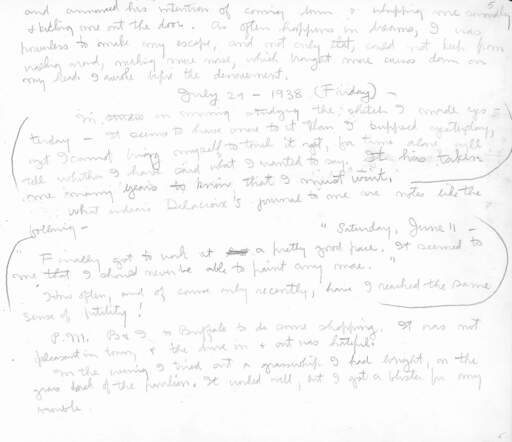 5
and announced his intention of coming down & whipping me soundly
& kicking me out the door. As often happens in dreams, I was
powerless to make my escape, and not only that, could not keep from
making more noise, which brought more curses down on
my head. I awoke before the denouement.
July 29 - 1938 (Friday) -
In studio in morning studying the sketch I made yes-
terday - It seems to have more to it than I supposed yesterday,
yet I cannot bring myself to touch it yet, for time alone will
tell whether I have said what I wanted to say. It has taken
me many years to know that I must wait.
What endears Delacroix's journal to me are notes like the
following -
" Saturday, June 11 -
" Finally got to work at a pretty good pace. It seemed to
me that I should never be able to paint any more. "
How often, and of course only recently, have I reached the same
sense of futility!
P.M. B & I to Buffalo to do some shopping. It was not
pleasant in town, & the drive in & out was hateful.
In the evening I tried out a grasswhip I had bought, on the
grass back of the pavilion. It worked well, but I got a blister for my
trouble.